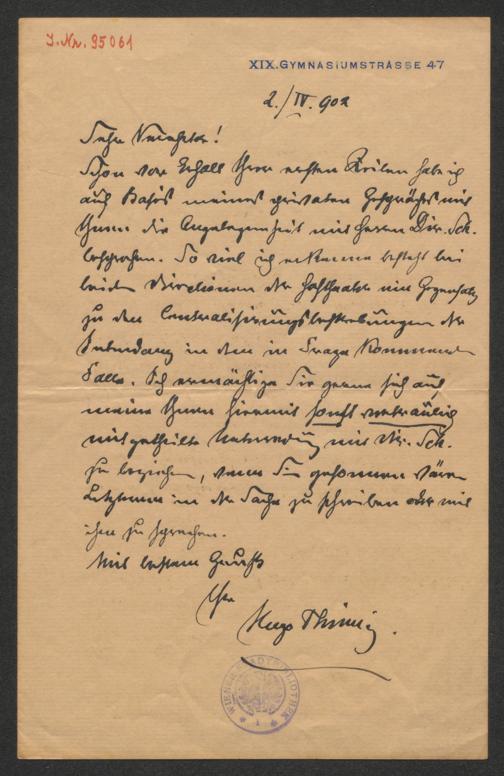 J.Nr. 95061
XIX. GYMNASIUMSTRASSE 47
2./IV. 902
Sehr Verehrter!
Schon vor Erhalt Ihrer ersten Zeilen habe ich
auf Basis meines privaten Gespräches mit
Ihnen die Angelegenheit mit Herrn Dir. Sch.
besprochen. So viel ich erkenne besteht bei
beiden Directionen der Hoftheater ein Gegensatz
zu den Centralisirungsbestrebungen der
Intendanz in dem in Frage kommenden
Falle. Ich ermächtige Sie gerne sich auf
meine Ihnen hiermit sonst vertraulich
mitgetheilte Unterredung mit Dir. Sch.
zu beziehen, wenn Sie gesonnen wären
Letzterem in der Sache zu schreiben oder mit
ihm zu sprechen.
Mit bestem Gruße
Ihr
Hugo Thimig.
WIENER STADTBIBLIOTHEK